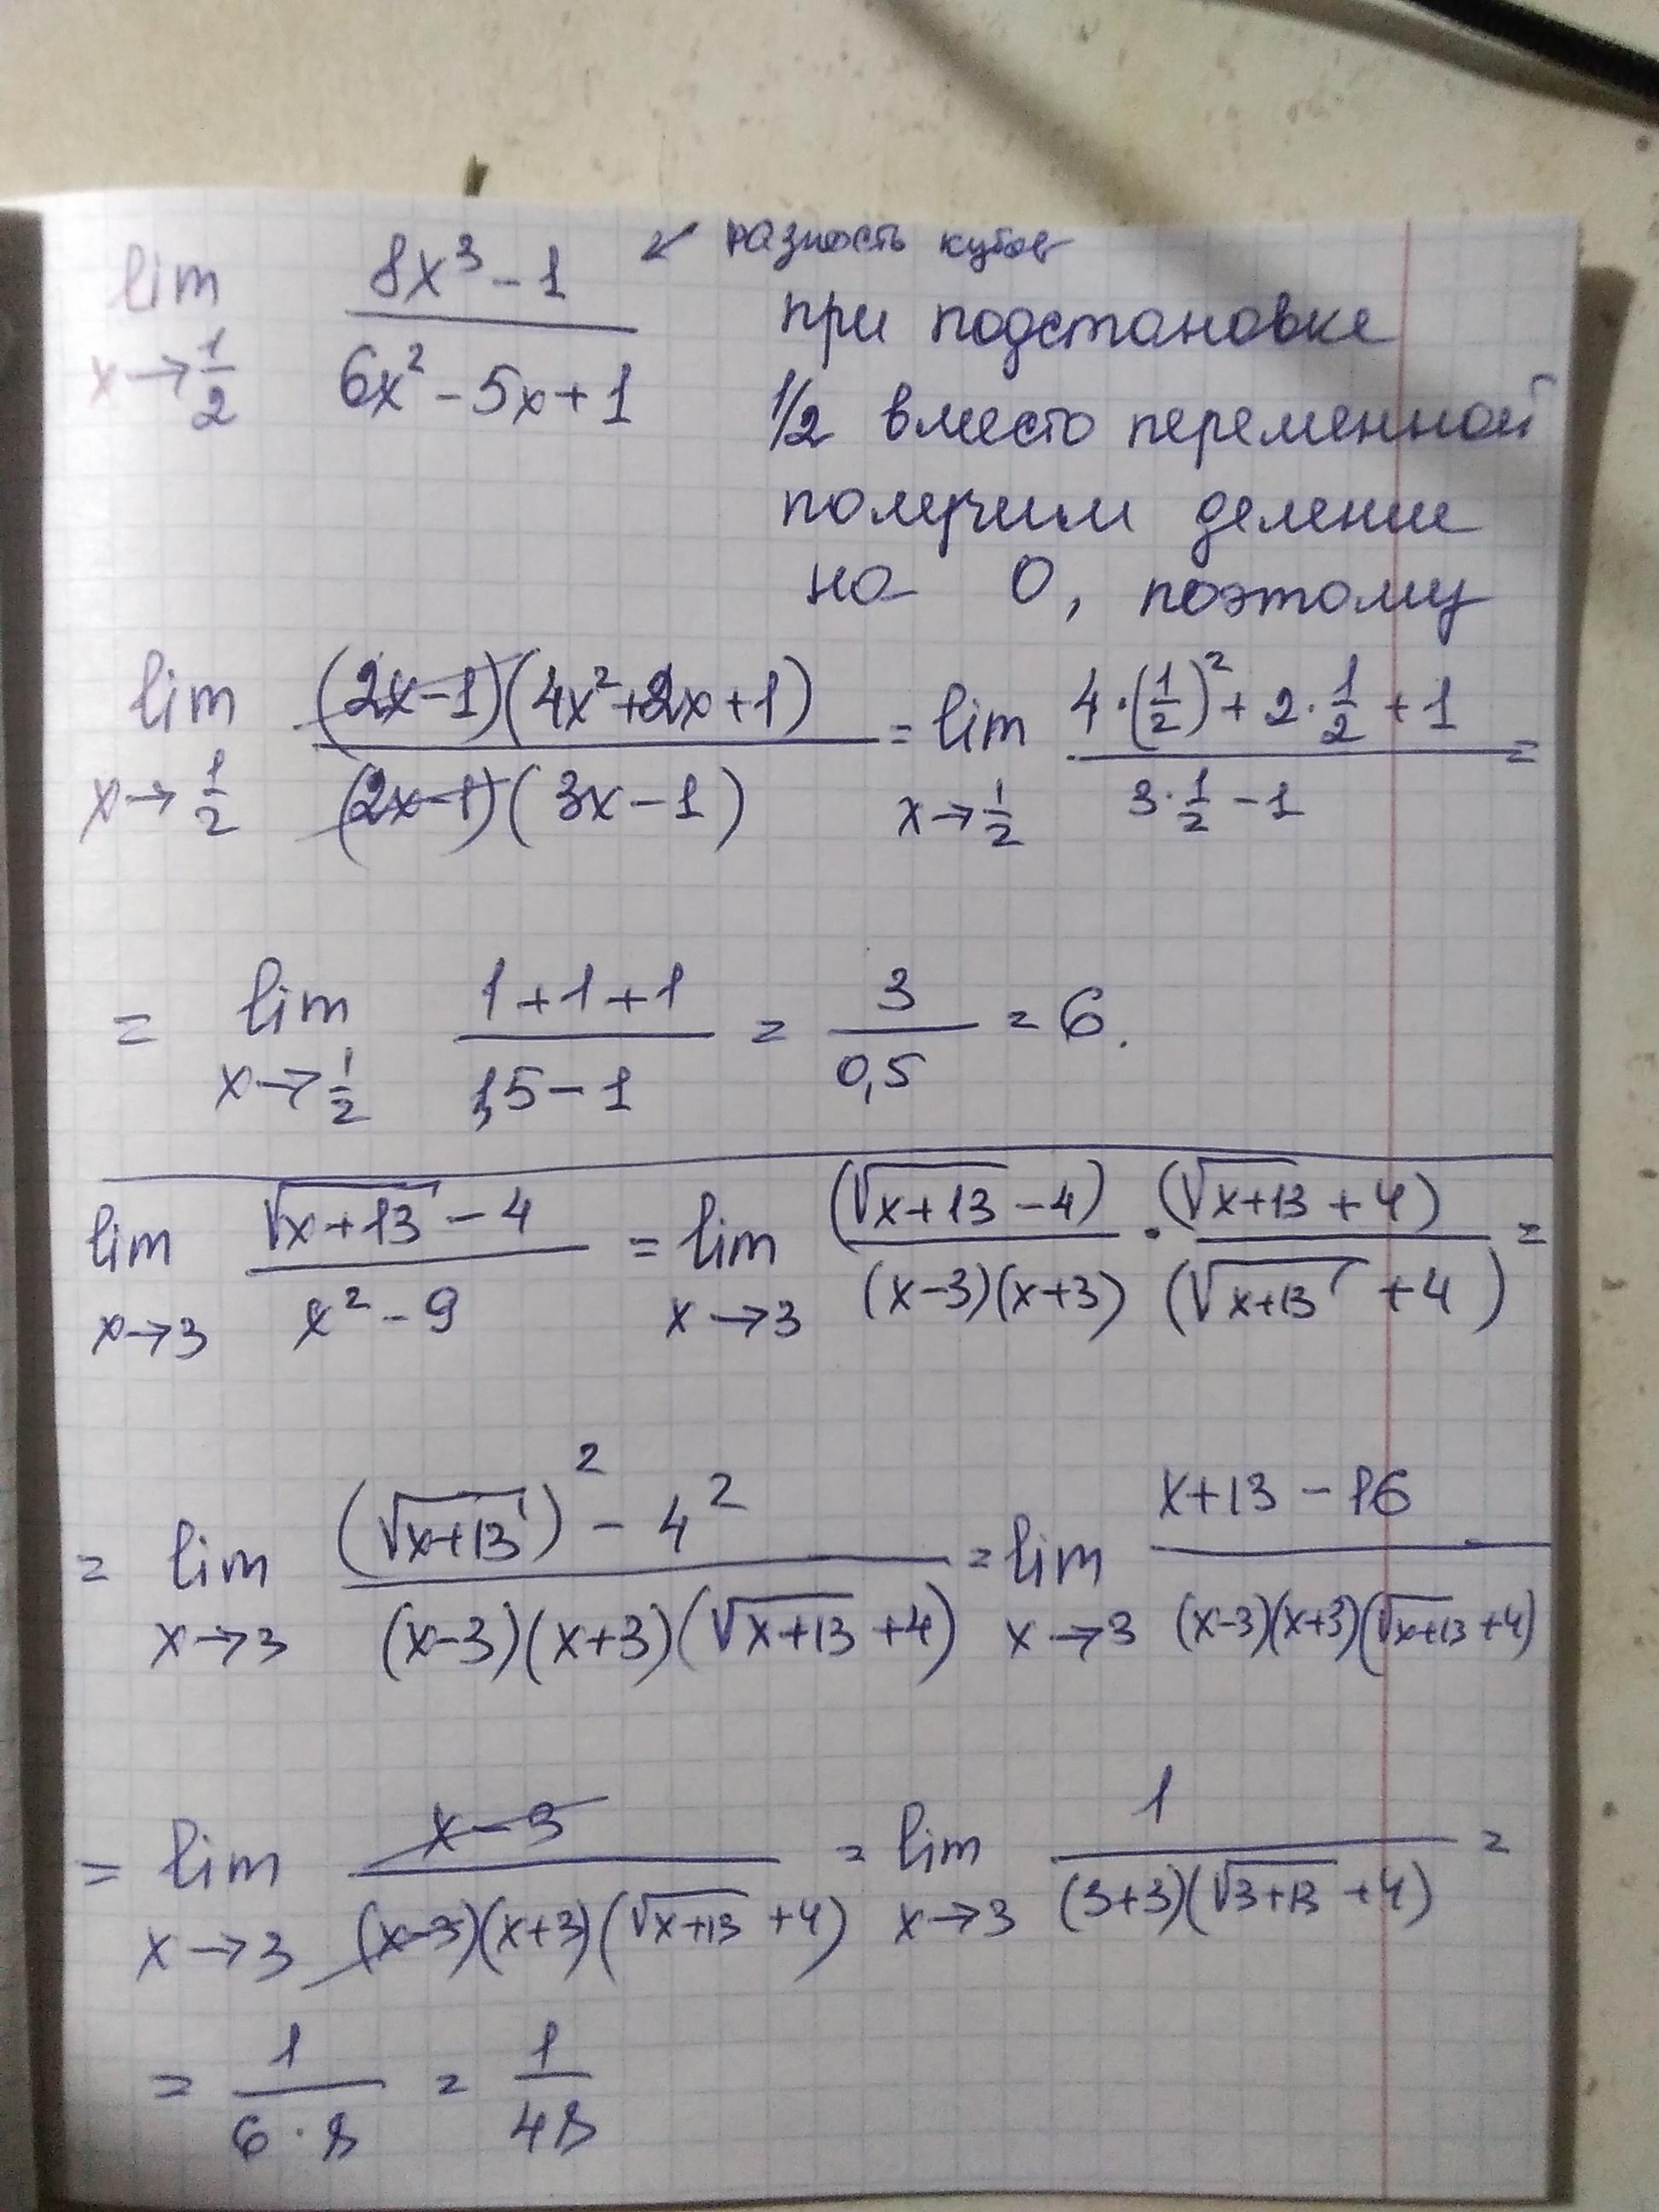 lim 8x³ - 1 / 6x² - 5x + 1 ↙ разность кубов
x→1/2
при подстановке
1/2 вместо переменной
получим деление
на 0, поэтому
lim (2x-1)(4x²+2x+1) / (2x-1)(3x-1) = lim 4·(1/2)² + 2·1/2 + 1 / 3·1/2 - 1 =
x→1/2 x→1/2
= lim 1+1+1 / 1,5-1 = 3 / 0,5 = 6.
x→1/2
lim √x+13 - 4 / x² - 9 = lim (√x+13 - 4) / (x-3)(x+3) · (√x+13 + 4) / (√x+13 + 4) =
x→3 x→3
= lim (√x+13)² - 4² / (x-3)(x+3)(√x+13 + 4) = lim x+13 - 16 / (x-3)(x+3)(√x+13 + 4)
x→3 x→3
= lim x-3 / (x-3)(x+3)(√x+13 + 4) = lim 1 / (3+3)(√3+13 + 4) =
x→3 x→3
= 1 / 6·8 = 1 / 48